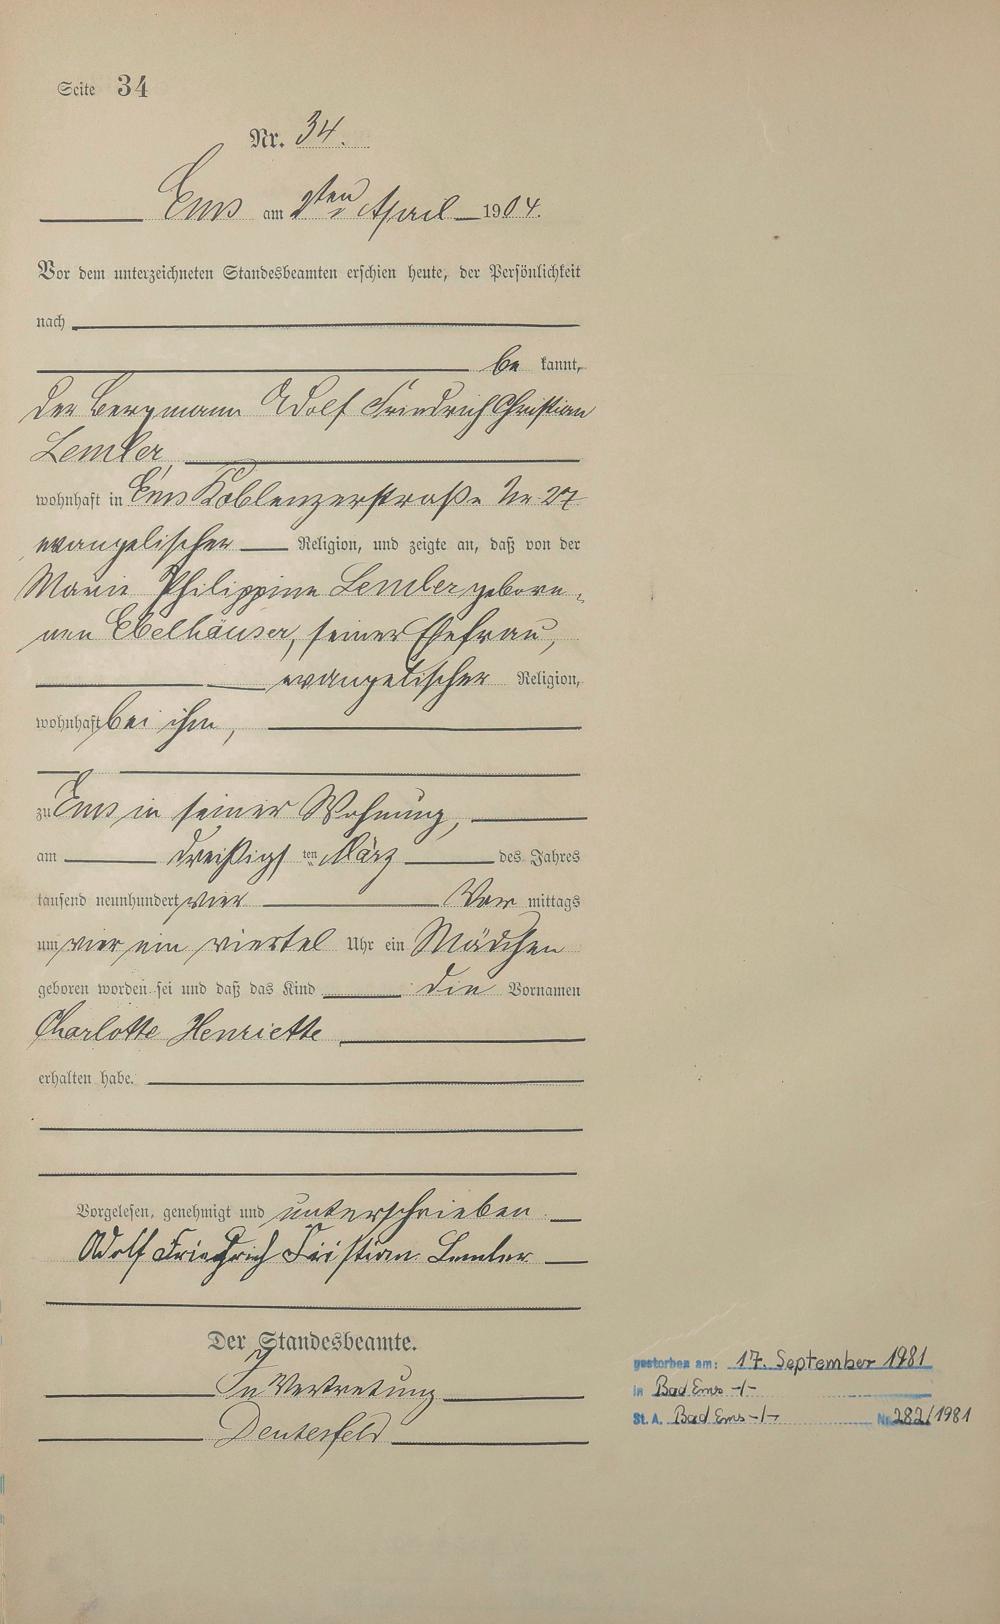 Seite 34
Nr. 34.
Ems am 2ten April 1904.
Vor dem unterzeichneten Standesbeamten erschien heute, der Persönlichkeit
nach
be kannt,
der Bergmann Adolf Friedrich Christian
Lemler,
wohnhaft in Ems Koblenzerstraße Nr 27
evangelischer Religion, und zeigte an, daß von der
Marie Philippine Lemler gebore-
nen Ebelhäuser, seiner Ehefrau,
evangelischer Religion,
wohnhaft bei ihm,
zu Ems in seiner Wohnung,
am dreißigsten März des Jahres
tausend neunhundert vier Vor mittags
um vier ein viertel Uhr ein Mädchen
geboren worden sei und daß das Kind die Vornamen
Charlotte Henriette
erhalten habe.
Vorgelesen, genehmigt und unterschrieben.
Adolf Friedrich Cristian Lemler
Der Standesbeamte.
In Vertretung
gestorben am: 17. September 1981
in Bad Ems -/-
St. A. Bad Ems -/- Nr. 282/1981